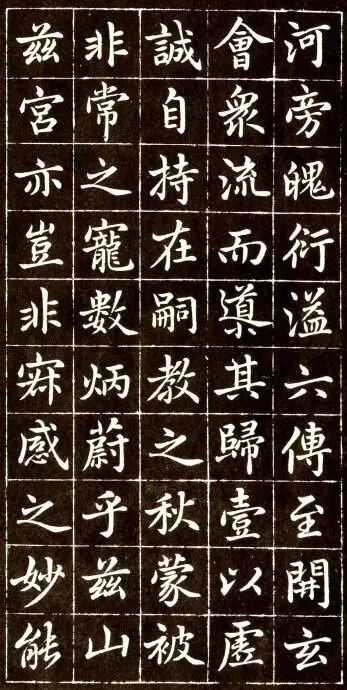 河旁魄衍溢六傳至開玄
會衆流而導其歸壹以虛
誠自持在嗣教之秋蒙被
非常之寵數炳蔚乎茲山
茲宮亦豈非冥感之妙能